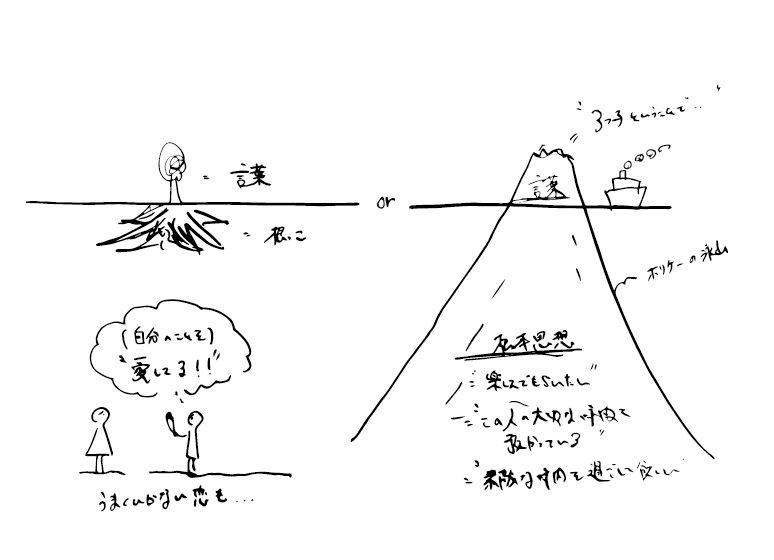 = 言葉
= 根っこ
(自分のことを)
"愛してる!!"
うまくいかない恋も...
or
言葉
ポリケーの氷山
根本思想
= "楽しんでもらいたい"
= "この人の大切な時間を
= "素敵な時間を過ごして欲しい"